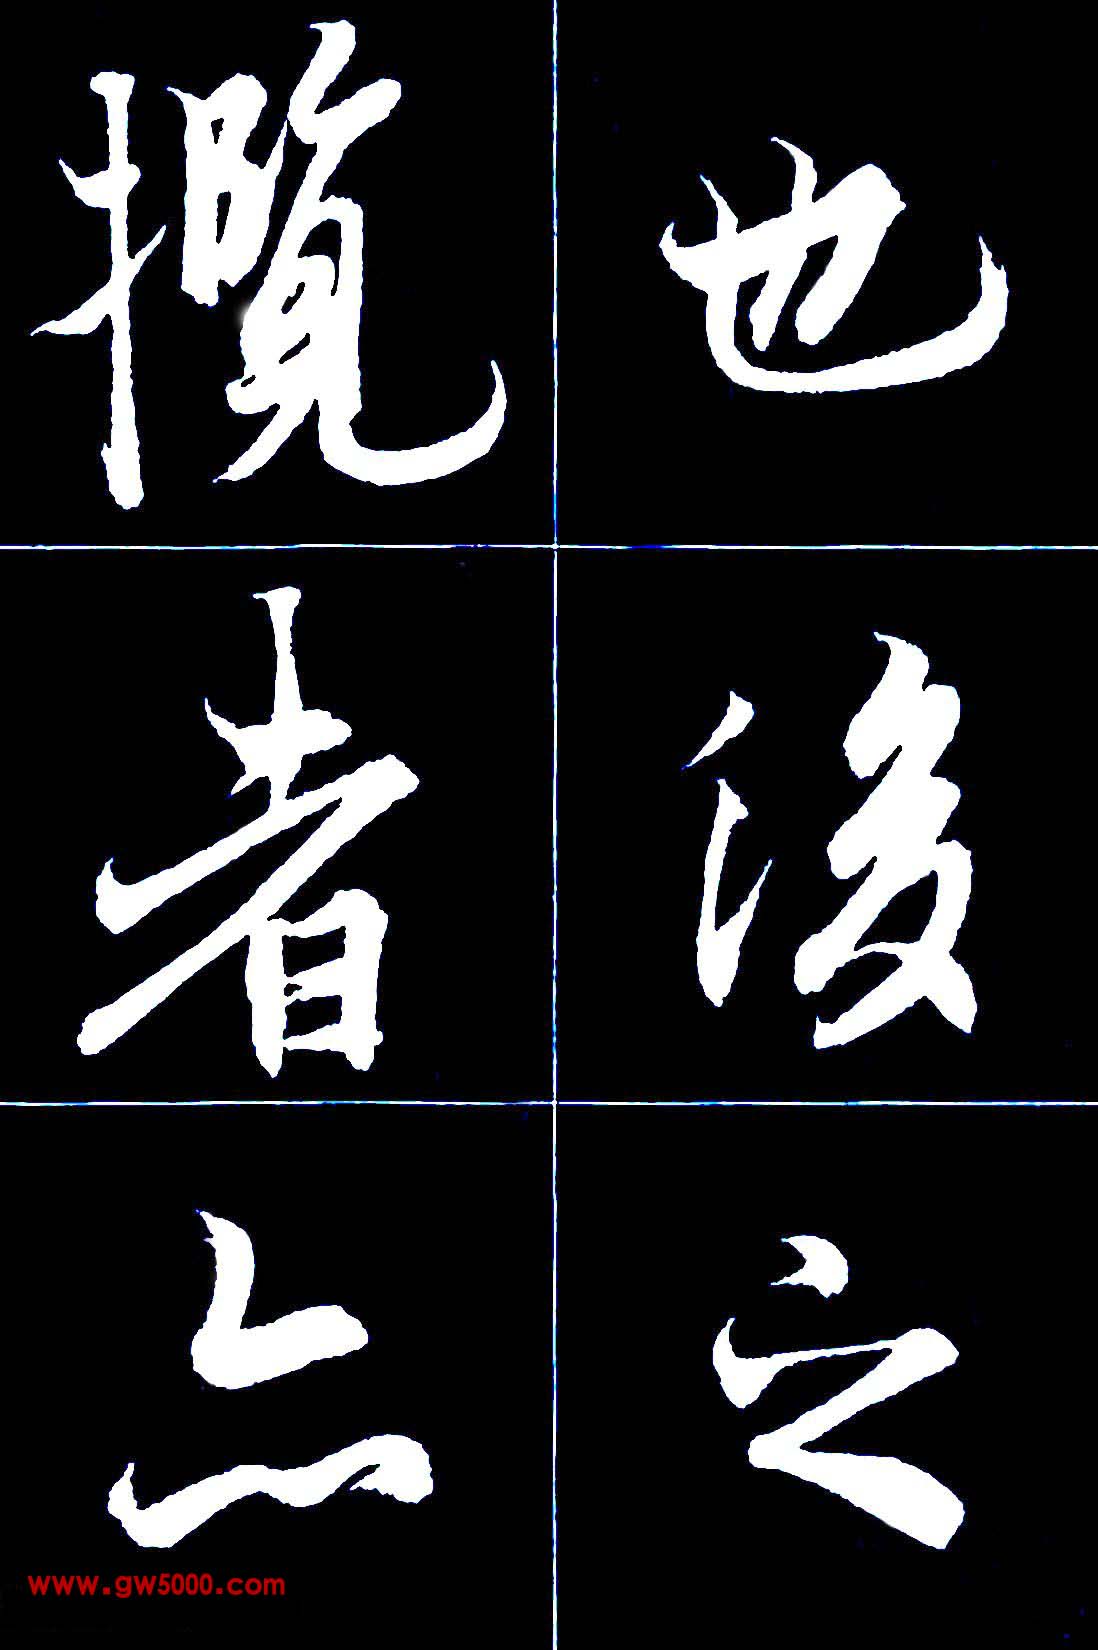 也後之
攬者亦
www.gw5000.com